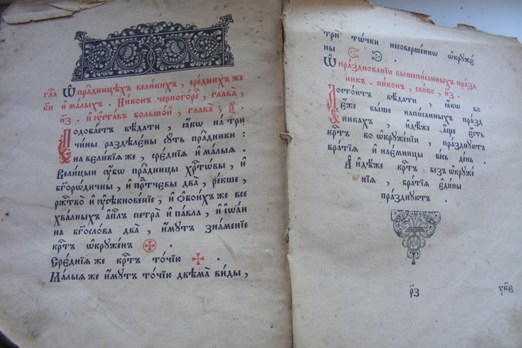 гла҃ Ѿ пра́здницѣхъ вели́кихъ, сре́днихъ же
и҆ ма́лыхъ. Ни́конъ черного́рѣ, глава̀,
и҆ ᲂу҆ста́въ большо́й, глава̀,
Подоба́ет вѣ́дати, ꙗ҆́кѡ на трѝ
чи́ны раздѣле́ны сꙋ́ть пра́здники:
на вели́кїѧ же, сре́днїѧ и҆ ма́лыѧ.
Вели́цыи ᲂу҆́бѡ пра́здницы хрⷭ҇то́вы, и҆
бг҃оро́дичны, и҆ прⷣте́чевы два̀, ре́кше,
ржⷭ҇тво̀ и҆ ᲂу҆сѣкнове́нїе, и҆ ѻ҆бои́хъ же все
хва́лныхъ а҆пⷭ҇лъ петра̀ и҆ па́вла, и҆ і҆ѡа́н
на бг҃осло́ва два̀, и҆́мꙋтъ зна́менїе
крⷭ҇тъ ѡ҆крꙋ́женъ
Сре́днїѧ же крⷭ҇тъ то́чїю
Ма́лыѧ же и҆́мꙋтъ то́чїю двѣма̀ ви́ды,
трѝ то́чки несоверше́ннѡ ѡ҆крꙋже
ны
Ѡ҆ пра́зднованїи вышепи́санныхъ пра́зд
никъ, ни́конъ, сло́во,
Досто́итъ вѣ́дати, ꙗ҆́кѡ во
е҆́же вы́ше напи́санныхъ пра́з
никахъ, и҆дѣ́же а҆́ще є҆́сть
крⷭ҇тъ во ѡ҆крꙋже́нїи, пра́зднꙋютъ
бра́тїѧ и҆ нае́мницы ве́сь де́нь
А҆ и҆дѣ́же крⷭ҇тъ, без̾ ѡ҆крꙋже
нїѧ, бра́тїѧ є҆ди́ны
пра́зднꙋютъ
р҃з